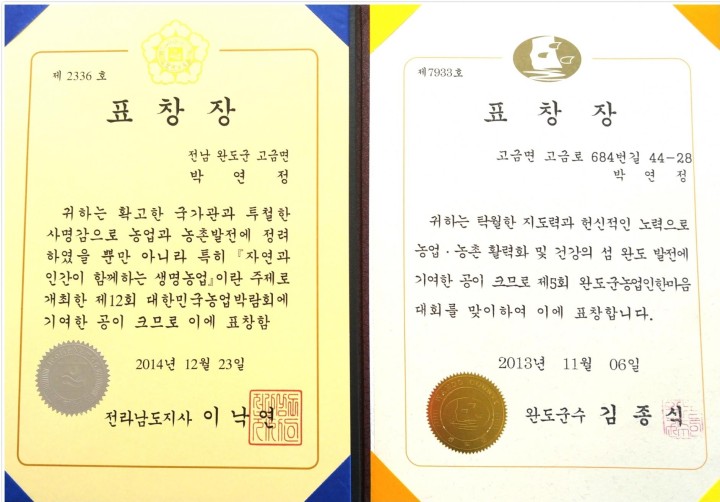 제 2336 호
표 창 장
전남 완도군 고금면
박 연 정
귀하는 확고한 국가관과 특철한
사명감으로 농업과 농촌발전에 정려
하였을 뿐만 아니라 특히 『자연과
인간이 함께하는 생명농업』이란 주제로
개최한 제12회 대한민국농업박람회에
기여한 공이 크므로 이에 표창함
2014년 12월 23일
전라남도지사 이 낙 연
제7933호
표 창 장
고금면 고금로 684번길 44-28
박 연 정
귀하는 탁월한 지도력과 헌신적인 노력으로
농업·농촌 활력화 및 건강의 섬 완도 발전에
기여한 공이 크므로 제5회 완도군농업인한마음
대회를 맞이하여 이에 표창합니다.
2013년 11월 06일
완도군수 김 종 식